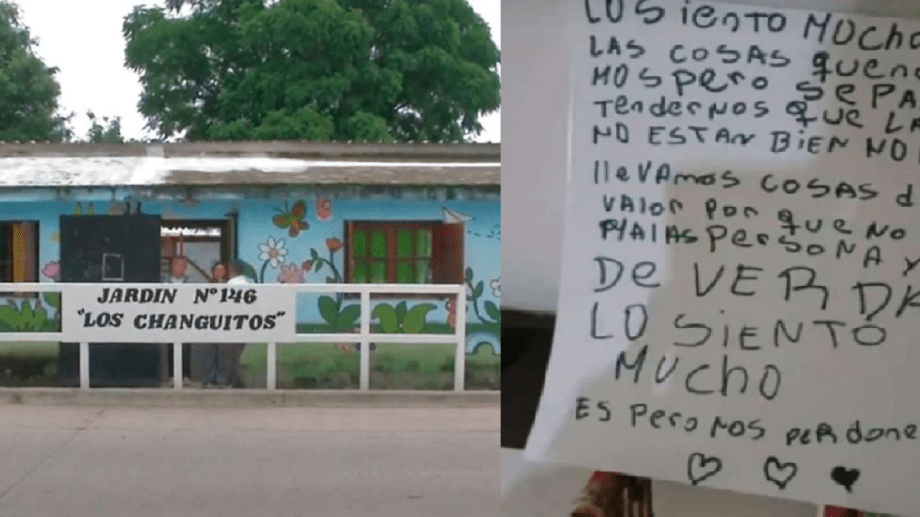 JARDIN Nº 146
"LOS CHANGUITOS"
LO SIENTO MUCHO
LAS COSAS
MOS PERO SEPA
TENDERNOS QUE LA
NO ESTAN BIEN NO
llevAMOS COSAS d
VALOR POR QUE NO
MALAS PERSONA Y
DE VERDA
LO SIENTO
MUCHO
ESPERO NOS PERDONE